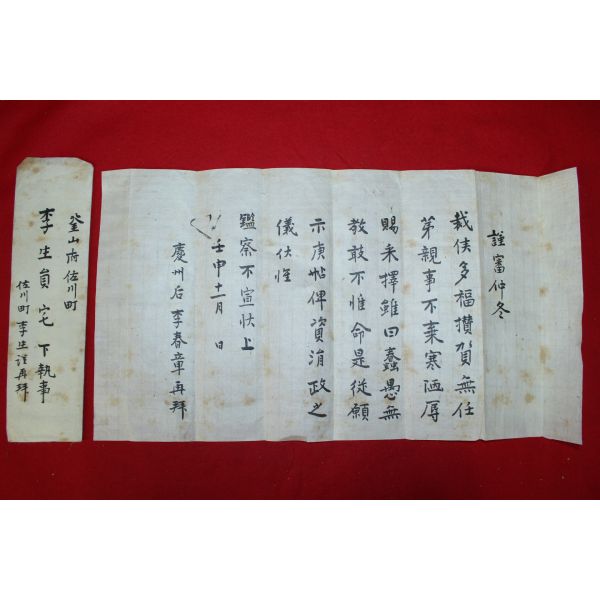 謹審仲冬
裁侯多福攢賀無任
第親事不棄寒洒辱
賜采擇雖曰蠢愚無
教敢不惟命是從願
示庚帖俾資涓政之
儀伏惟
鑑察不宣狀上
壬申十一月 日
慶州后李春章再拜
釜山府佐川町
李生員宅下執事
佐川町李生謹再拜